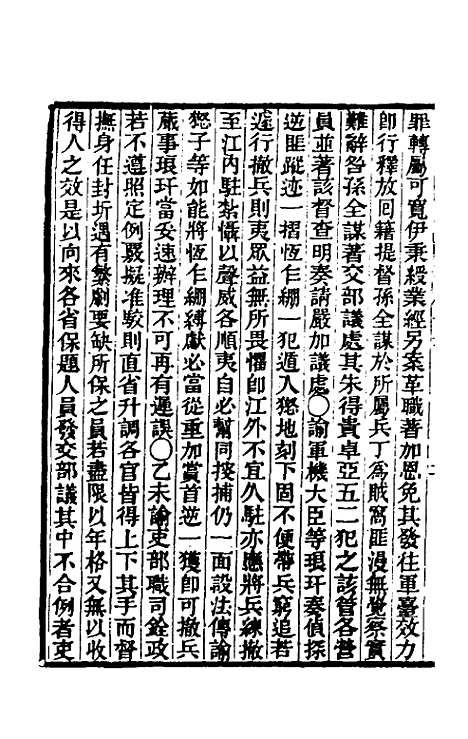 罪轉屬可寬伊秉綬業經另案革職著加恩免其發往軍臺效力
即行釋放回籍提督孫全謀於所屬兵丁為賊窩匪漫無覺察實
難辭咎孫全謀著交部議處其朱得貴卓亞五二犯之該管各營
員並著該督查明奏請嚴加議處○諭軍機大臣等琅玕奏偵探
逆匪蹤迹一摺恆乍綳一犯遁入猓地刻下固不便帶兵窮追若
遽行撤兵則夷眾益無所畏懼卽江外不宜久駐亦應將兵練撤
至江內駐紮懾以聲威各順夷自必幫同搜捕仍一面設法傳諭
猓子等如能將恆乍綳縛獻必當從重加賞首逆一獲卽可撤兵
蕆事琅玕當妥速辦理不可再有遲誤○乙未諭吏部職司銓政
若不遵照定例嚴擬准駮則直省升調各官皆得上下其手而督
撫身任封圻遇有繁劇要缺所保之員若盡限以年格又無以收
得人之效是以向來各省保題人員發交部議其中不合例者吏